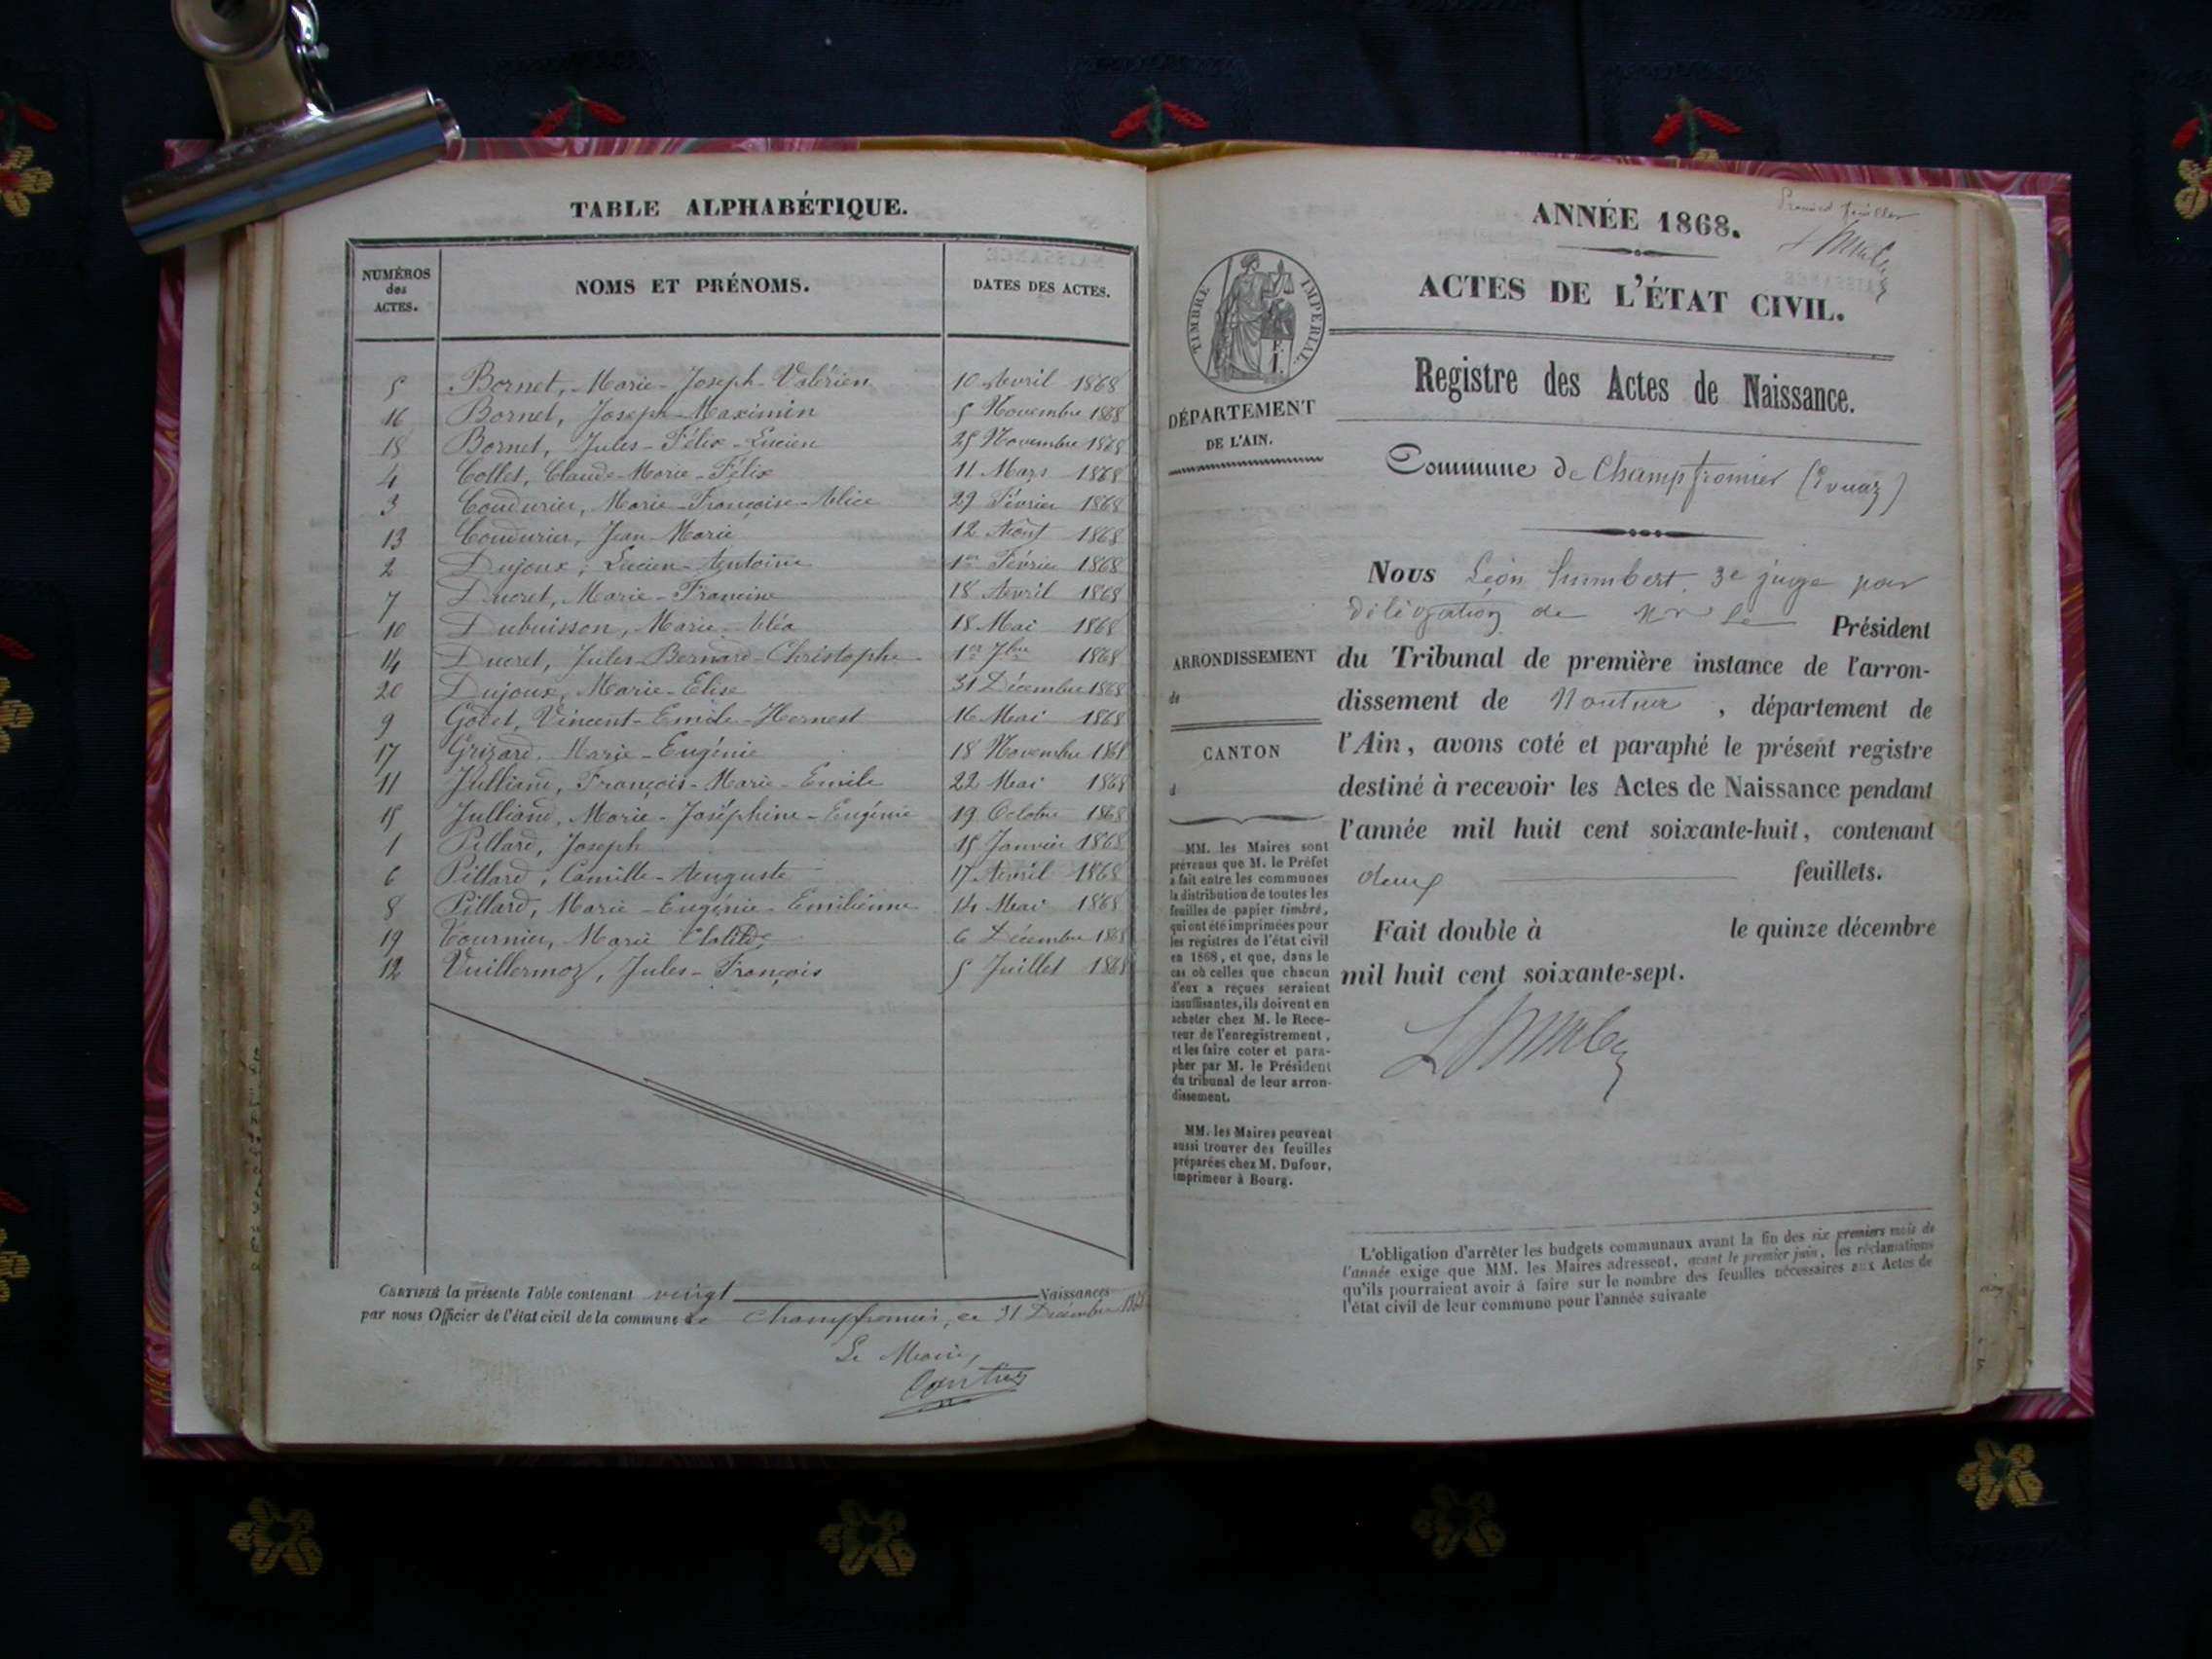 TABLE ALPHABÉTIQUE.
NUMÉROS des ACTES. NOMS ET PRÉNOMS. DATES DES ACTES.
5 Bornet, Marie-Joseph-Valérien 10 Avril 1868
16 Bornet, Joseph-Maximin 5 Novembre 1868
18 Bornet, Jules-Félix-Lucien 25 Novembre 1868
4 Collet, Claude-Marie-Félix 11 Mars 1868
3 Coudurier, Marie-Françoise-Alice 29 Février 1868
13 Coudurier, Jean-Marie 12 Août 1868
2 Dujoux, Lucien-Antoine 1er Février 1868
7 Ducret, Marie-Francine 18 Avril 1868
10 Dubuisson, Marie-Cléa 18 Mai 1868
14 Ducret, Jules-Bernard-Christophe 1er 7bre 1868
20 Dujoux, Marie-Elise 31 Décembre 1868
9 Godet, Vincent-Emile-Hernest 16 Mai 1868
17 Grizard, Marie-Eugénie 18 Novembre 1868
11 Julliand, François-Marie-Emile 22 Mai 1868
15 Julliand, Marie-Joséphine-Eugénie 19 Octobre 1868
1 Pillard, Joseph 15 Janvier 1868
6 Pillard, Camille-Auguste 17 Avril 1868
8 Pillard, Marie-Eugénie-Emilienne 14 Mai 1868
19 Tournier, Marie Clotilde 6 Décembre 1868
12 Vuillermoz, Jules-François 5 Juillet 1868
CERTIFIÉ la présente Table contenant vingt Naissances
par nous Officier de l'état civil de la commune de Champfromier, ce 31 Décembre 1868
Le Maire,
Coutier
Premier feuillet
ANNÉE 1868.
ACTES DE L'ÉTAT CIVIL.
TIMBRE IMPÉRIAL
Registre des Actes de Naissance.
DÉPARTEMENT
DE L'AIN.
Commune de Champfromier (Evuaz)
Nous Léon Humbert, 3e juge par
délégation de Mr le Président
ARRONDISSEMENT
de
CANTON
d
du Tribunal de première instance de l'arron-
dissement de Nantua, département de
l'Ain, avons coté et paraphé le présent registre
destiné à recevoir les Actes de Naissance pendant
l'année mil huit cent soixante-huit, contenant
deux feuillets.
Fait double à le quinze décembre
mil huit cent soixante-sept.
MM. les Maires sont
prévenus que M. le Préfet
a fait entre les communes
la distribution de toutes les
feuilles de papier timbré,
qui ont été imprimées pour
les registres de l'état civil
en 1868, et que, dans le
cas où celles que chacun
d'eux a reçues seraient
insuffisantes, ils doivent en
acheter chez M. le Rece-
veur de l'enregistrement,
et les faire coter et para-
pher par M. le Président
du tribunal de leur arron-
dissement.
MM. les Maires peuvent
aussi trouver des feuilles
préparées chez M. Dufour,
imprimeur à Bourg.
L'obligation d'arrêter les budgets communaux avant la fin des six premiers mois de
l'année exige que MM. les Maires adressent, avant le premier juin, les réclamations
qu'ils pourraient avoir à faire sur le nombre des feuilles nécessaires aux Actes de
l'état civil de leur commune pour l'année suivante